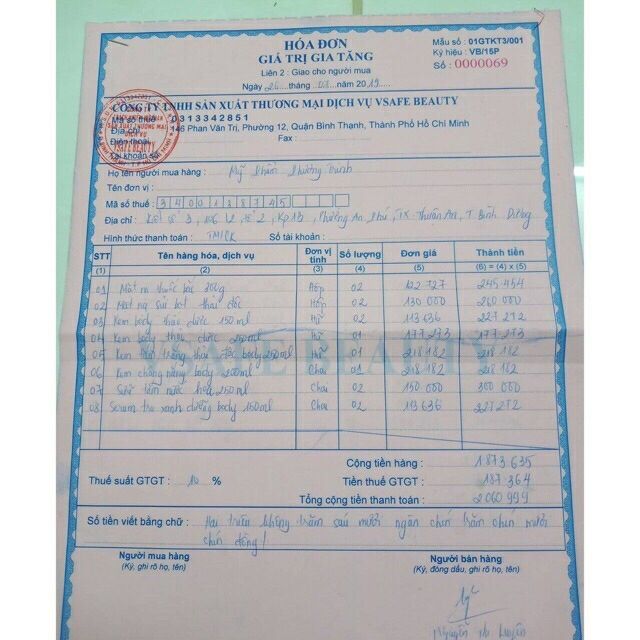 HÓA ĐƠN
GIÁ TRỊ GIA TĂNG
Liên 2 : Giao cho người mua
Ngày 26 tháng 03 năm 2019
Mẫu số : 01GTKT3/001
Ký hiệu : VB/15P
Số : 0000069
CÔNG TY TNHH SẢN XUẤT THƯƠNG MẠI DỊCH VỤ VSAFE BEAUTY
Mã số thuế : 0313342851
Địa chỉ : 146 Phan Văn Trị, Phường 12, Quận Bình Thạnh, Thành Phố Hồ Chí Minh
Điện thoại : Fax :
Tài khoản số :
SẢN XUẤT THƯƠNG MẠI
DỊCH VỤ
VSAFE BEAUTY
Họ tên người mua hàng : Mỹ Phẩm Phương Trinh
Tên đơn vị :
Mã số thuế : 3400138745
Địa chỉ : 3, 2, KP1B, Phường An Phú, TX Thuận An, T Bình Dương
Hình thức thanh toán : TM/CK Số tài khoản :
STT Tên hàng hóa, dịch vụ Đơn vị tính Số lượng Đơn giá Thành tiền
(1) (2) (3) (4) (5) (6) = (4) x (5)
01 Mặt nạ thuốc bắc 300g Hộp 02 122 727 245 454
02 Mặt nạ sủi bọt thải độc Hộp 02 130 000 260 000
03 Kem body thảo dược 150ml Hũ 02 113 636 227 272
04 Kem body thảo dược 250ml Hũ 01 177 273 177 273
05 Kem trắng body 250ml Hũ 01 218 182 218 182
06 Kem chống nắng body 200ml Chai 01 218 182 218 182
07 Sữa tắm nước hoa 250ml Chai 02 150 000 300 000
08 Serum trà xanh dưỡng body 150ml Chai 02 113 636 227 272
SAFE BEAUTY
Cộng tiền hàng : 1 873 635
Thuế suất GTGT : 10 % Tiền thuế GTGT : 187 364
Tổng cộng tiền thanh toán : 2 060 999
Số tiền viết bằng chữ : Hai triệu không trăm sáu mươi ngàn chín trăm chín mươi
chín đồng!
Người mua hàng Người bán hàng
(Ký, ghi rõ họ, tên) (Ký, đóng dấu, ghi rõ họ, tên)
Nguyễn Thị